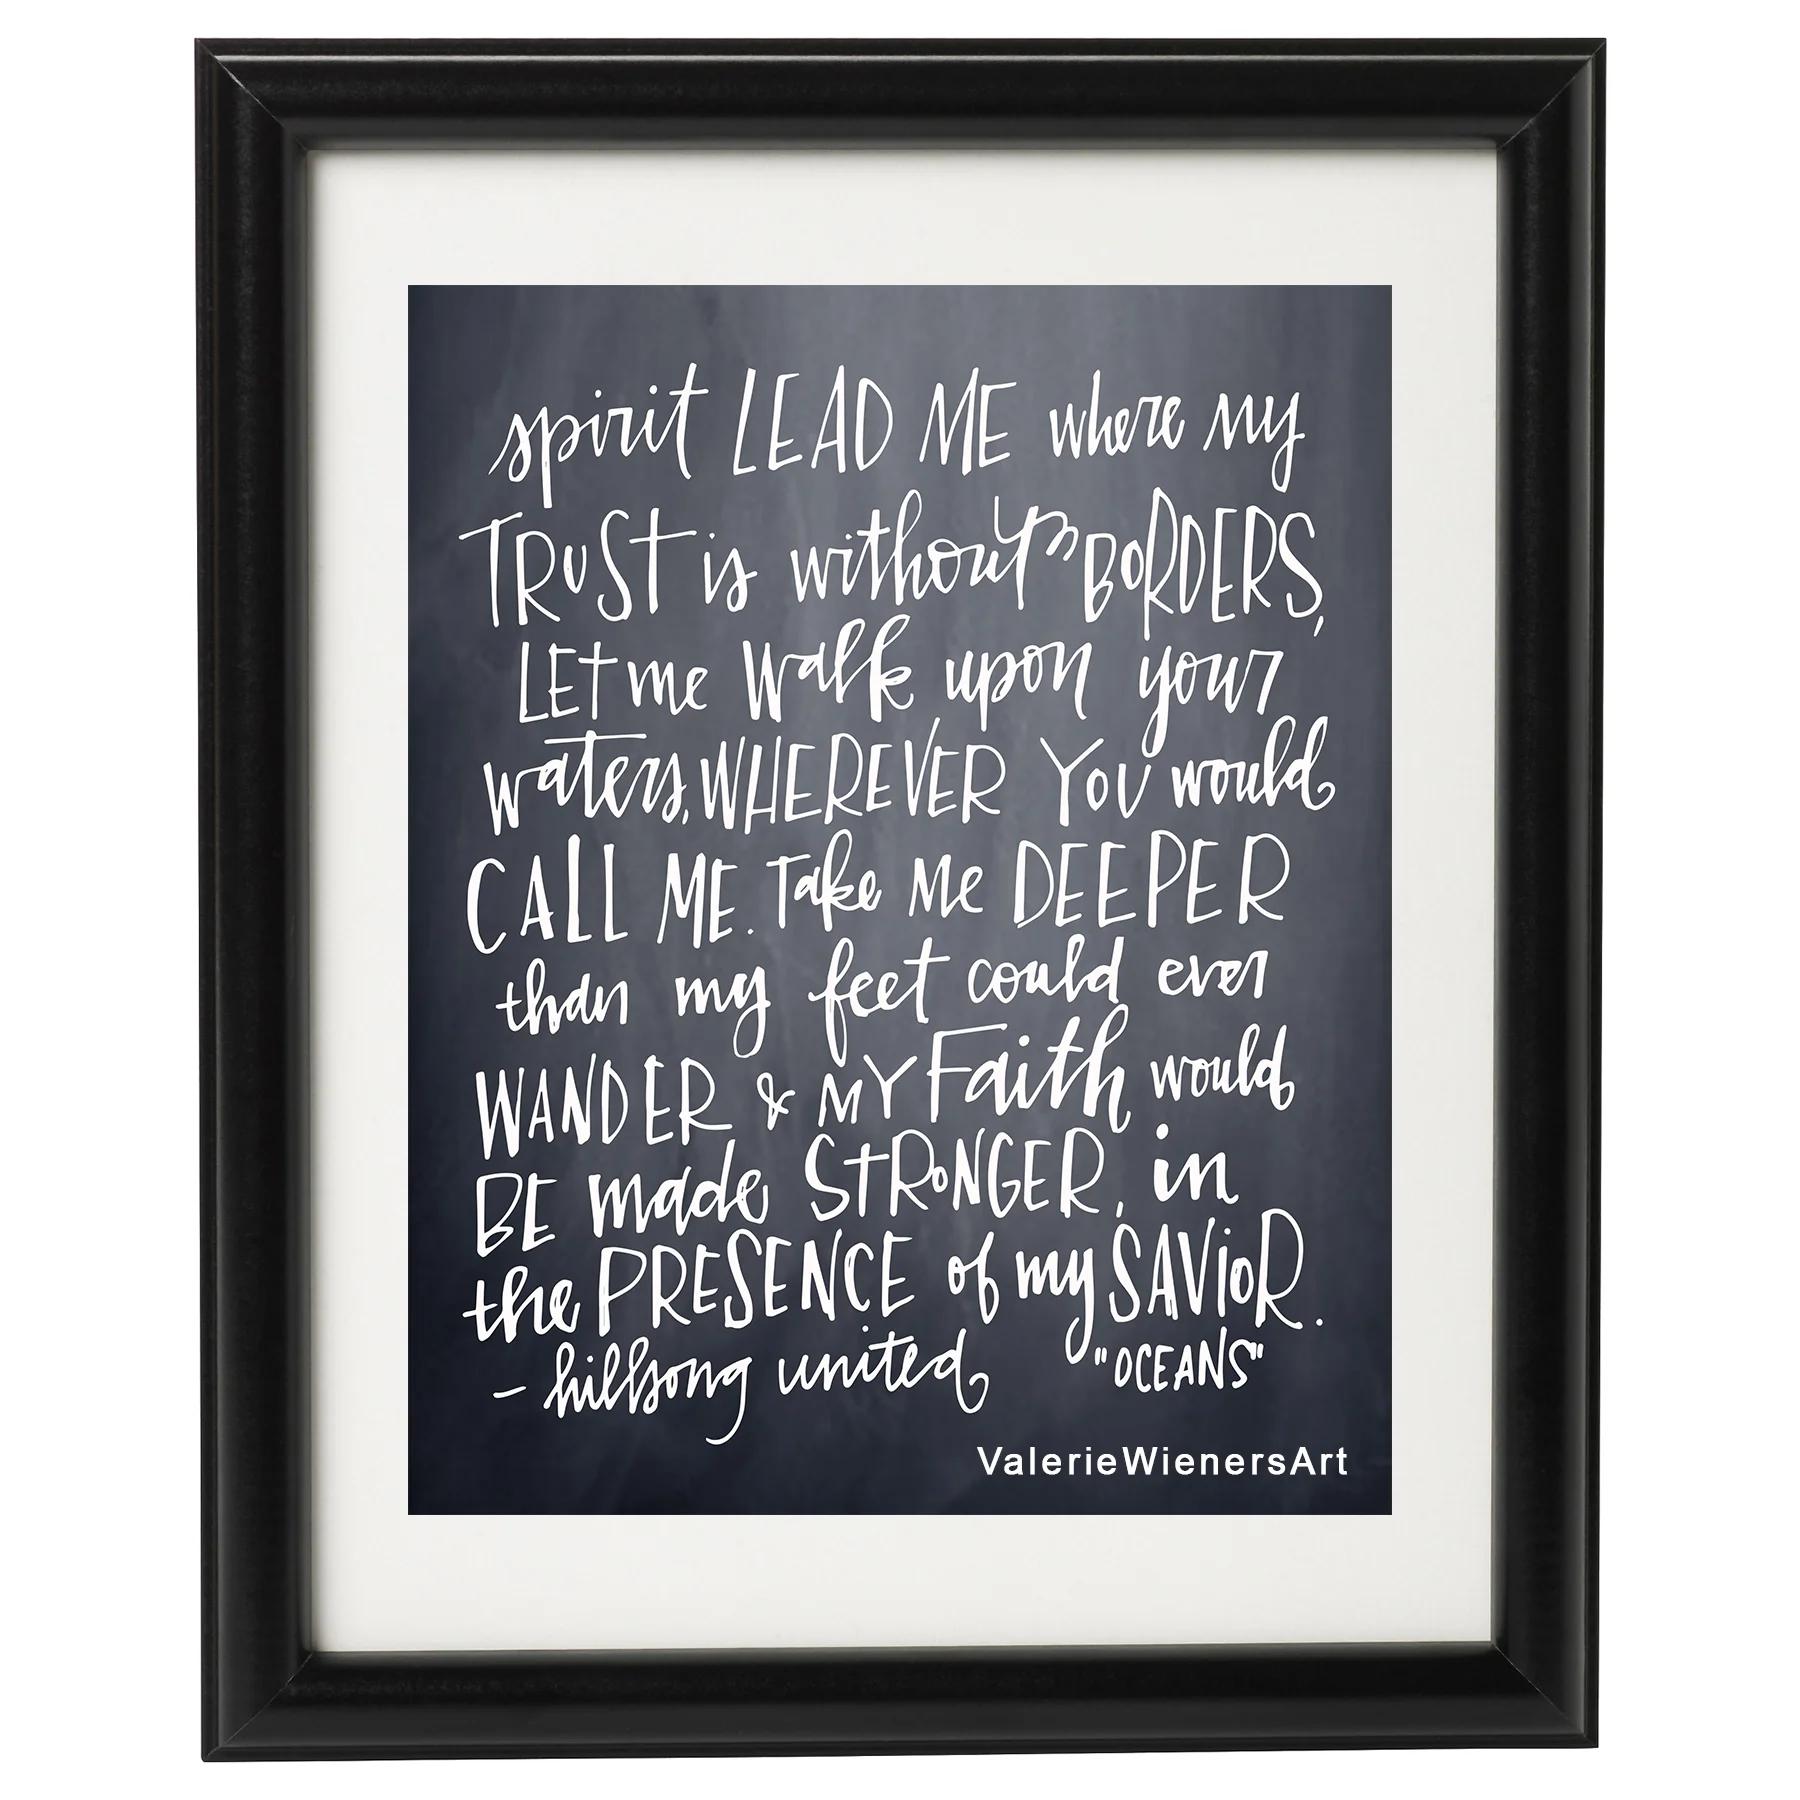 spirit LEAD ME where my
TRUST is without BORDERS,
LET me walk upon your
waters, WHEREVER YOU would
CALL ME. Take me DEEPER
than my feet could ever
WANDER & MY Faith would
BE made STRONGER, in
the PRESENCE of my SAVIOR.
- hillsong united "OCEANS"
ValerieWienersArt